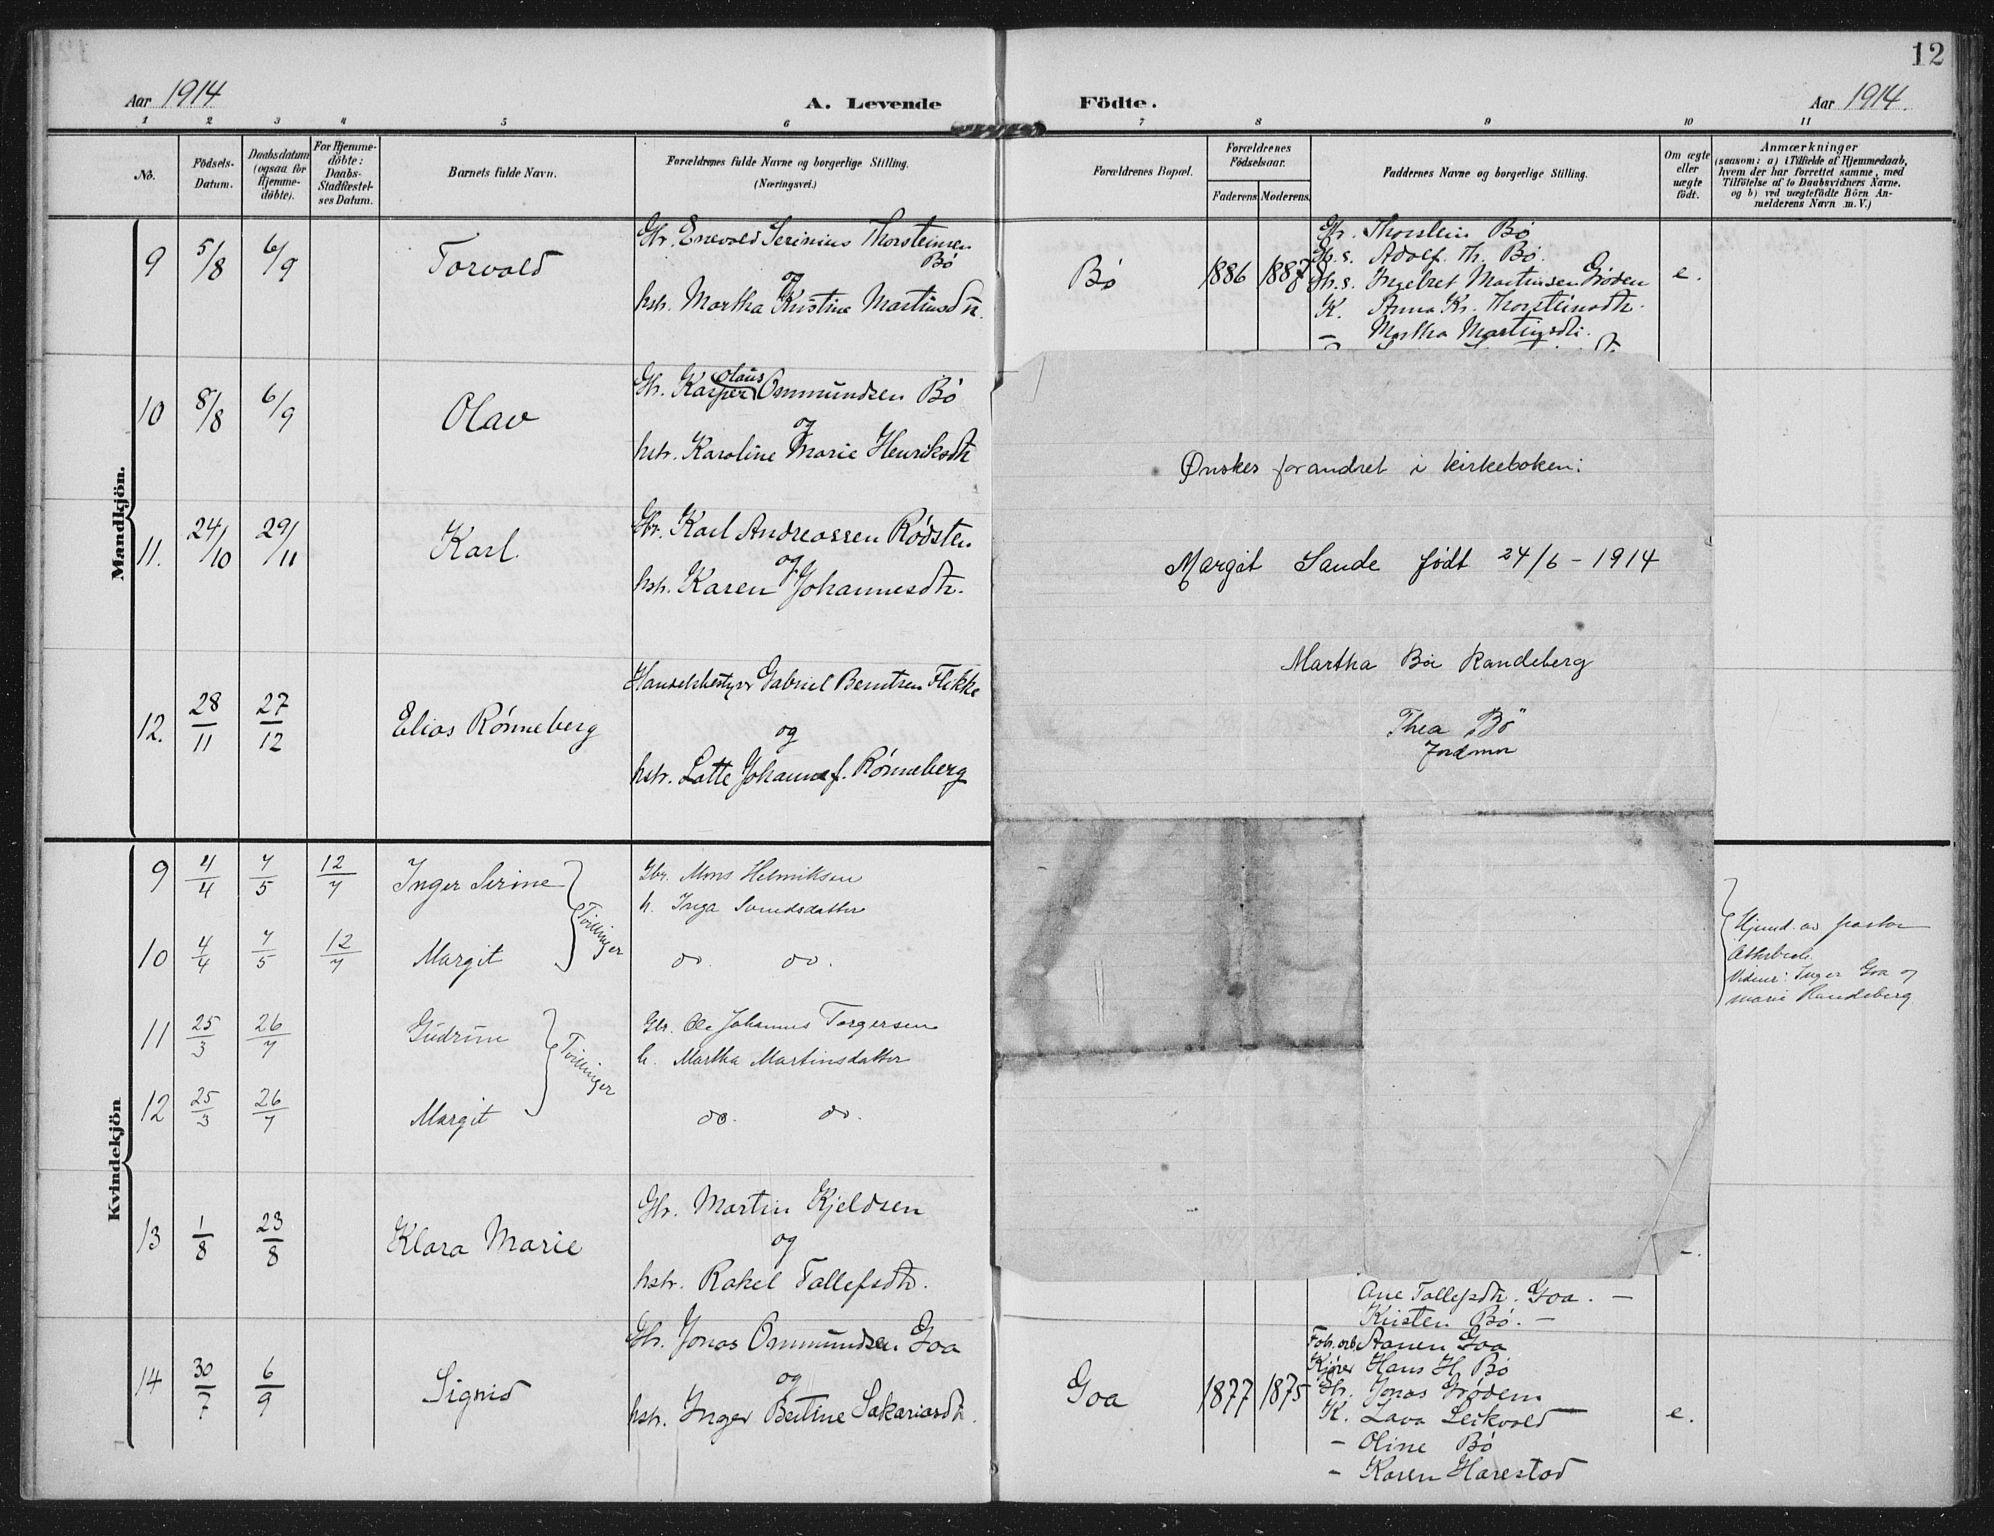 12
Aar 1914
A. Levende
Födte.
Aar 1914.
1 2 3 4 5 6 7 8 9 10 11
No.
Födsels-
Datum.
Daabsdatum
(ogsaa for
Hjemme-
döbte).
For Hjemme-
döbte:
Daabs-
Stadfæstel-
ses Datum.
Barnets fulde Navn.
Forældrenes fulde Navne og borgerlige Stilling.
(Næringsvei.)
Forældrenes Bopæl.
Forældrenes
Födselsaar.
Faderens
Moderens
Faddernes Navne og borgerlige Stilling.
Om ægte
eller
uægte
födt.
Anmærkninger
(saasom: a) i Tilfælde af Hjemmedaab,
hvem der har forrettet samme, med
Tilföielse af to Daabsvidners Navne.
og b) ved uægtefödte Börn An-
melderens Navn m. V.)
Mandkjön.
9 5/8 6/9 Torvald
Gbr. Enevold Serinius Thorsteinsen
Bö
og
hstr. Martha Kristine Martinsdtr.
Bö 1886 1887
Gbr. Thorstein Bö
Gb.s. Adolf Th. Bö.
Gb.s. Ingebret Martinsen Gröden
K. Anna Kr. Thorsteinsdtr.
– Martha Martinsdtr.
e.
10 8/8 6/9 Olav
Gbr. Kasper Olaus Ommundsen Bö
og
hstr. Karoline Marie Henriksdtr
11. 24/10 29/11 Karl
Gbr. Karl Andreassen Rödsten
og
hstr. Karen Johannesdtr.
12. 28/11 27/12 Elias Rönneberg
Handelsbestyrer Gabriel Berntsen Flikke
og
hstr. Lotte Johanne f. Rönneberg
Ønskes forandret i kirkeboken:
Margit Sande født 24/6 – 1914
Martha Bö Randeberg
Thea Bö
Jordmor
Kvindekjön
9 4/4 7/5 12/7 Inger Serine
Tvillinger
Gbr. Mons Helmiksen
h. Inga Svendsdatter
10 4/4 7/5 12/7 Margit
do. do.
Hjemd. av pastor
Vidner: Inger Goa og
Marie Randeberg
11 25/3 26/7 Gudrun
Tvillinger
Gbr. Ole Johannes Torgersen
h. Martha Martinsdatter
12 25/3 26/7 Margit
do. do.
13 1/8 23/8 Klara Marie
Gbr. Martin Kjeldsen
og
hstr. Rakel Tollefsdtr.
Ane Tollefsdtr. Goa. –
Kirsten Bö. –
14 30/7 6/9 Signid
Gbr. Jonas Ommundsen Goa
og
hstr. Inger Bertine Sakariasdtr.
Goa 1877 1875
Fabr.arb. Aanen Goa
Kjører Hans H. Bö
Gbr. Jonas Grödem
K. Lava Leikvold
– Oline Bö
– Karen Harestad
e.